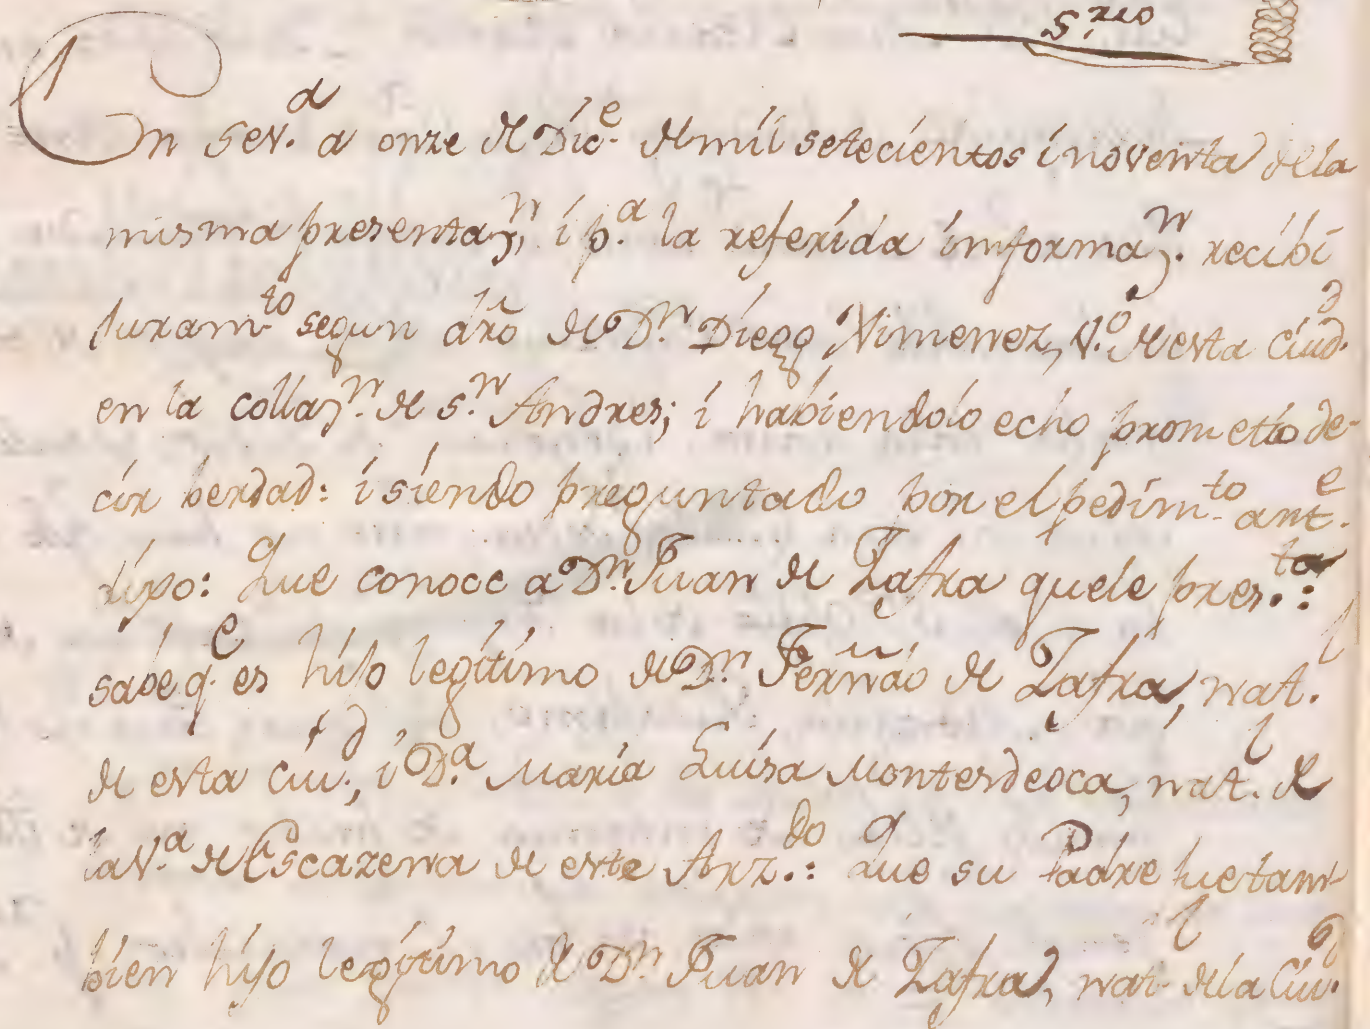 S.rio
En Sev.a a onze de Dic.e de mil setecientos i noventa de la
misma presentaz.n, i p.a la referida informaz.n recibi
juram.to segun dro de D.n Diego Ximenez, V.o de esta Ciud.d
en la collaz.n de S.n Andres; i habiendolo echo prometio de-
cir berdad: i siendo preguntado por el pedim.to ant.e
dixo: Que conoce a D.n Juan de Zafra que le pres.ta:
sabe q.e es hijo legitimo de D.n Ferndo de Zafra, nat.l
de esta Ciu.d, i D.a Maria Luisa Montesdeoca, nat.l de
la V.a de Escazena de este Arz.do: Que su Padre fue tam-
bien hijo legitimo de D.n Juan de Zafra, nat.l de la Ciu.d